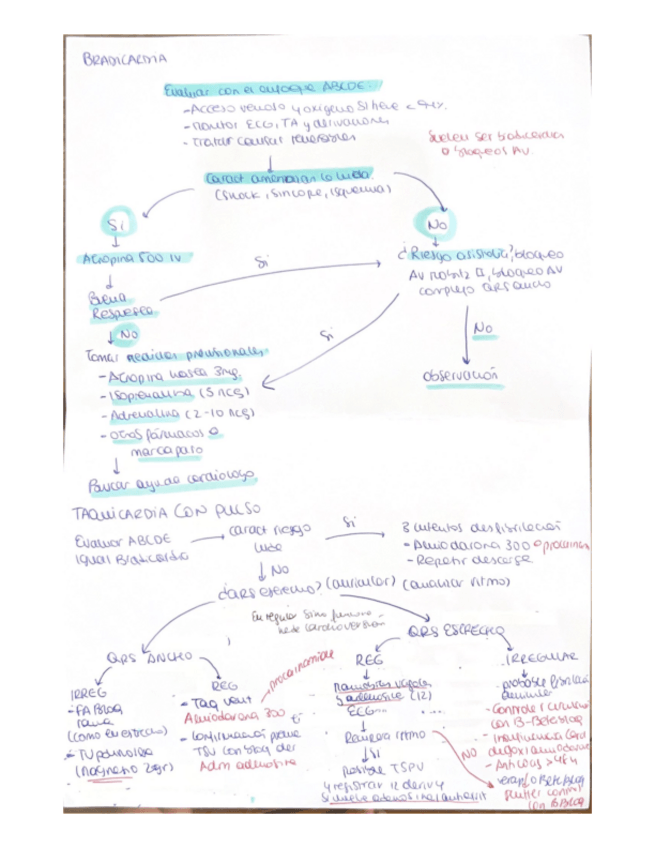 BRADICARDIA
Evaluar con el enfoque ABCDE
- Acceso venoso y oxigeno si
- Monitor ECG, TA y derivaciones
- Tratar causas reversibles
Suelen ser bradicardias
o bloqueos AV.
Caract amenazan la vida.
(Shock, Sincope, Isquemia)
Si
No
Atropina 500 IV
Si
¿Riesgo asistolia?, bloqueo
AV Mobitz II, bloqueo AV
completo QRS ancho
Buena
Respuesta
No
Si
No
Tomar medidas provisionales
- Atropina hasta 3mg.
- Isoprenalina (5 mcg)
- Adrenalina (2-10 mcg)
- Otros fármacos o
marcapaso
observación
Buscar ayuda cardiologo
TAQUICARDIA CON PULSO
Evaluar ABCDE
igual Bradicardia
caract riesgo
vida
Si
3 intentos desfibrilación
- Amiodarona 300 o
- Repetir descarga
No
¿QRS estrecho? (auricular) (ritmo)
En regular si no funciona
cardioversión
QRS ANCHO
QRS ESTRECHO
IRREG
REG
REG
IRREGULAR
procainamida
- FA Bloq
rama
(como en estrecho)
- TV polimorfa
(magnesio 2gr)
- Taq vent
Amiodarona 300
- Confirmación previa
TSV con bloq de
Adm adenosina
Maniobras vagales
y adenosina (12)
ECG...
Revierte ritmo
SI
NO
posible TSPV
y registrar 12 deriv y
probable fibrilación
- Control
con B-Bloq
- Insuficiencia card
digox/amiodarona
- Anticoag >48h
Flutter control
con BBloq